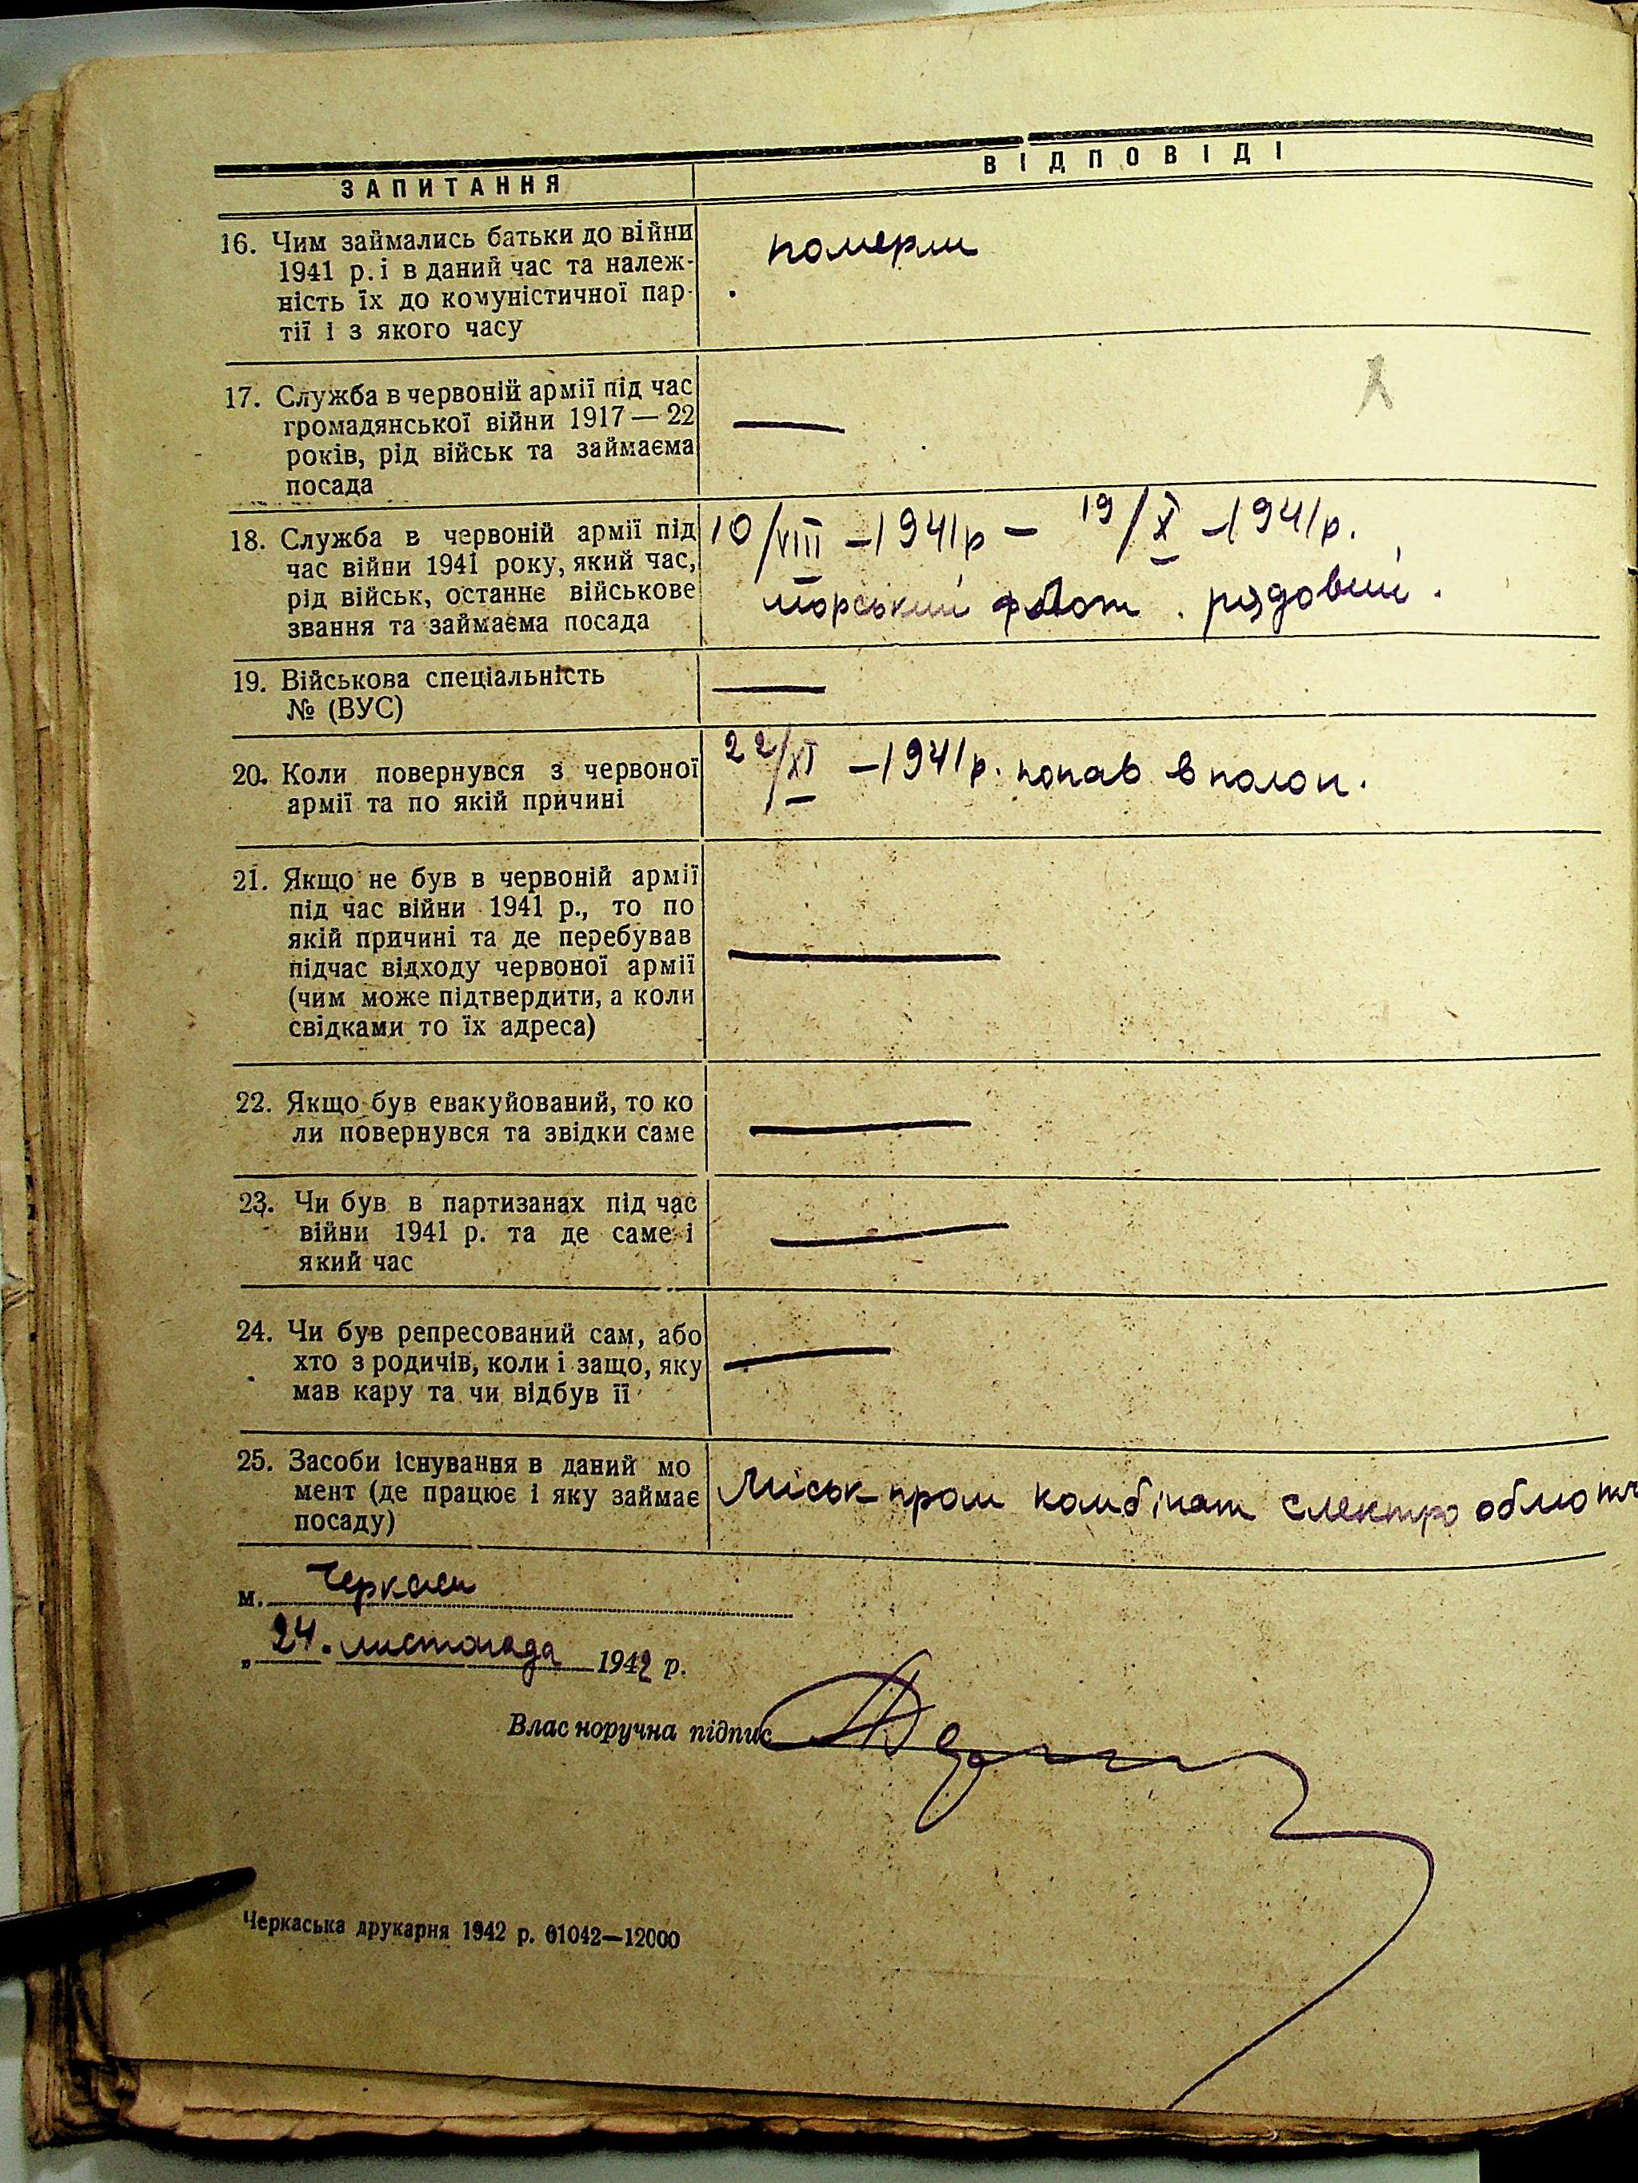 ЗАПИТАННЯ
ВІДПОВІДІ
16. Чим займались батьки до війни
1941 р. і в даний час та належ-
ність їх до комуністичної пар-
тії і з якого часу
померли
17. Служба в червоній армії під час
громадянської війни 1917 — 22
років, рід військ та займаєма
посада
18. Служба в червоній армії під
час війни 1941 року, який час,
рід військ, останнє військове
звання та займаєма посада
10/VIII – 1941р – 19/X – 1941р.
морський флот. рядовий.
19. Військова спеціальність
№ (ВУС)
20. Коли повернувся з червоної
армії та по якій причині
22/XI – 1941р. попав в полон.
21. Якщо не був в червоній армії
під час війни 1941 р., то по
якій причині та де перебував
підчас відходу червоної армії
(чим може підтвердити, а коли
свідками то їх адреса)
22. Якщо був евакуйований, то ко
ли повернувся та звідки саме
23. Чи був в партизанах під час
війни 1941 р. та де саме і
який час
24. Чи був репресований сам, або
хто з родичів, коли і защо, яку
мав кару та чи відбув її
25. Засоби існування в даний мо
мент (де працює і яку займає
посаду)
Міськпром комбінат електрообмотч
м. Черкаси
„ 24. листопада 1942 р.
Власноручна підпис
Черкаська друкарня 1942 р. 01042—12000